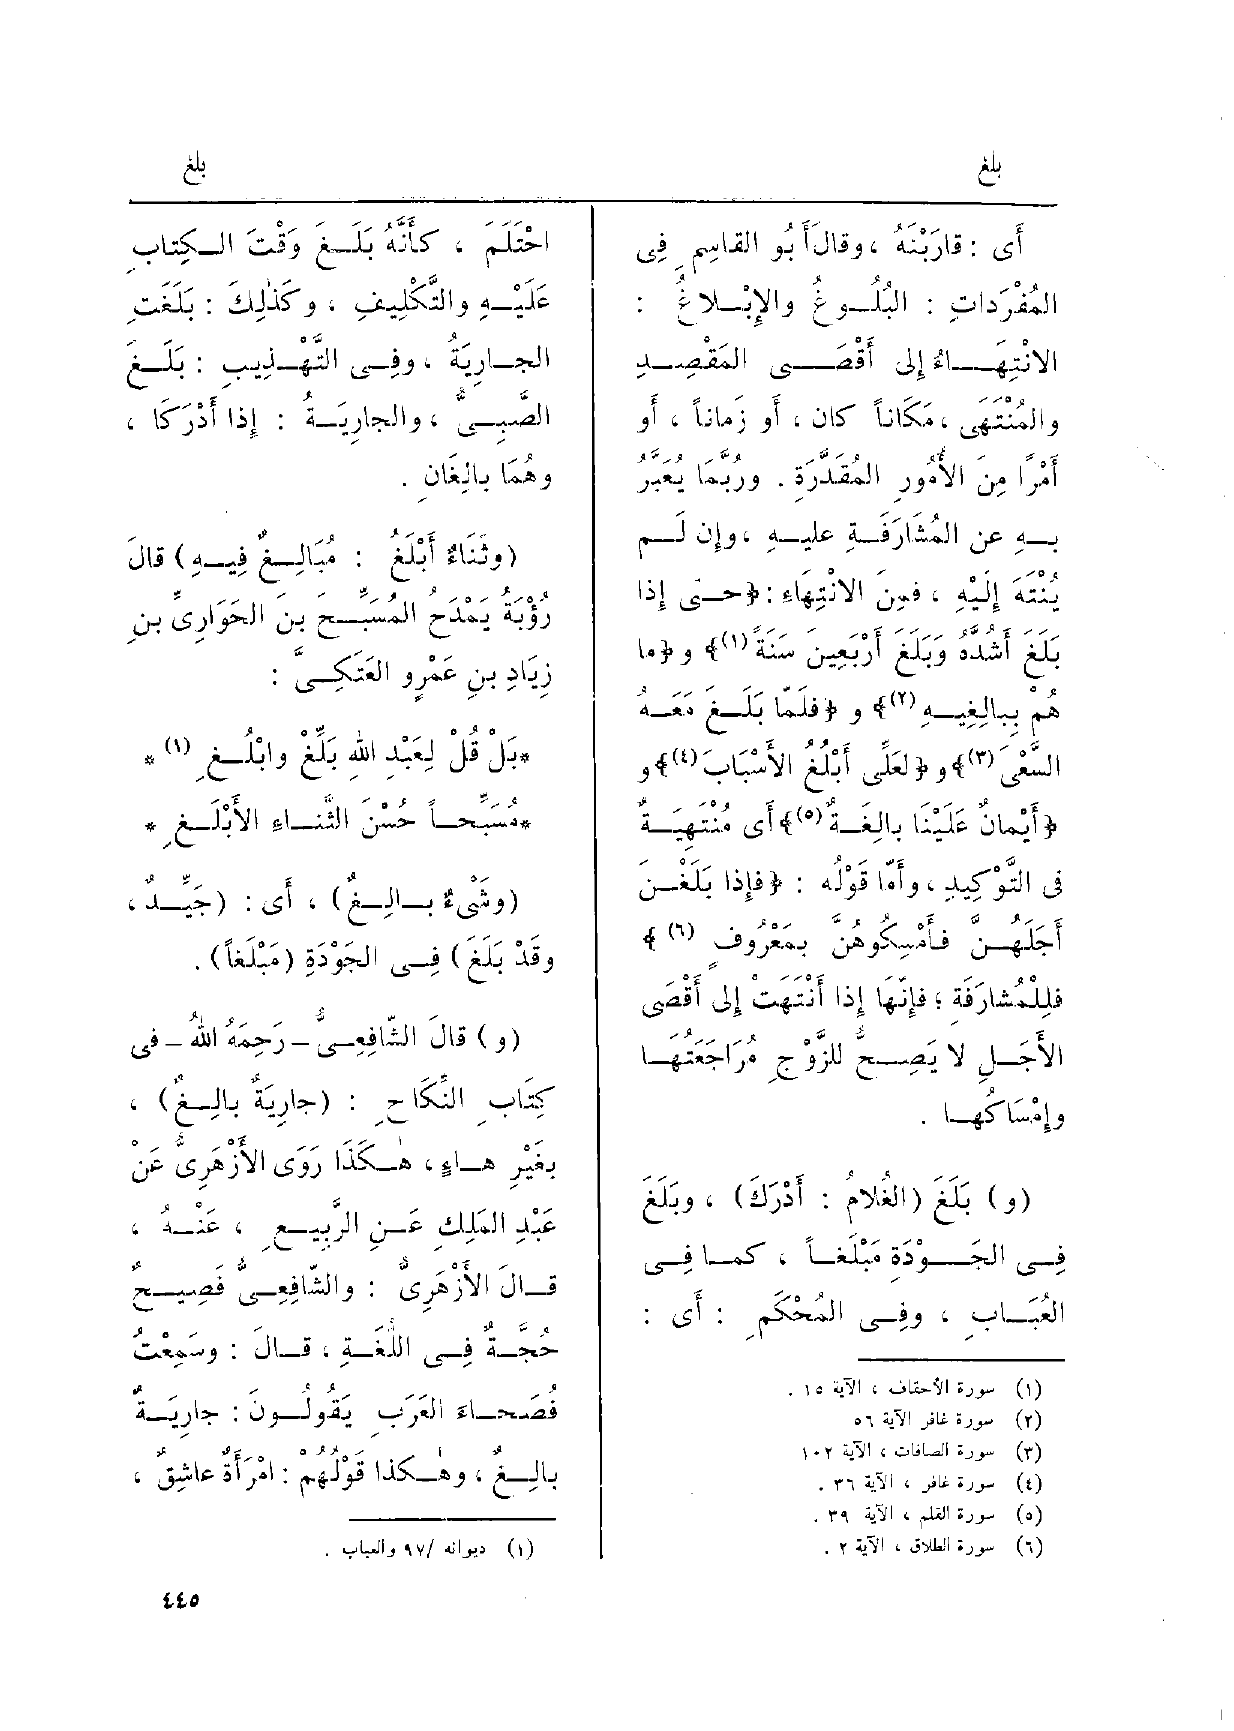 بلغ
بلغ
أى : قارَبْنَهُ ، وقالَ أَبُو القاسِمِ فِى
المُفْرَدَاتِ : البُلُــوغُ والإِبْــلاغُ :
الانْتِهَــــاءُ إِلى أَقْصَــــى المَقْصِــدِ
والمُنْتَهَى ، مَكَاناً كان ، أو زَماناً ، أو
أَمْرًا مِنَ الأُمُورِ المُقَدَّرَةِ . ورُبَّمَا يُعَبَّرُ
بِــهِ عن المُشَارَفَــةِ عليــهِ ، وإِن لَــم
يُنْتَهَ إِلَيْهِ ، فمِنَ الانْتِهَاءِ : ﴿حــتى إِذا
بَلَغَ أَشُدَّهُ وَبَلَغَ أَرْبَعِينَ سَنَةً(١)﴾ و ﴿ما
هُمْ بِبالِغِيــهِ(٢)﴾ و ﴿فلَمّا بَلَــغَ مَعَــهُ
السَّعْىَ(٣)﴾ و ﴿لعَلِّى أَبْلُغُ الأَسْبَابَ(٤)﴾ و
﴿أَيْمانٌ عَلَيْنَا بالِغَــةٌ(٥)﴾ أى مُنْتَهِيَــةٌ
فى التَّوْكِيدِ ، وأَمّا قوْلُه : ﴿فإِذا بَلَغْــنَ
أَجَلَهُــنَّ فأَمْسِكُوهُنَّ بمَعْرُوفٍ (٦) ﴾
فلِلْمُشارَفَةِ ؛ فإِنَّها إِذا انْتَهَت إِلى أَقْصَى
الأَجَــلِ لا يَصِــحُّ للزَّوْجِ مُرَاجَعَتُهَــا
وإِمْسَاكُهــا .
(و) بَلَغَ (الغُلامُ : أَدْرَكَ) ، وبَلَغَ
فِــى الجَــــوْدَةِ مَبْلَغــاً ، كمــا فِــى
العُبَــابِ ، وفِــى المُحْكَمِ : أَى :
(١) سورة الأحقاف ، الآية ١٥ .
(٢) سورة غافر الآية ٥٦
(٣) سورة الصافات ، الآية ١٠٢
(٤) سورة غافر ، الآية ٣٦ .
(٥) سورة القلم ، الآية ٣٩ .
(٦) سورة الطلاق ، الآية ٢ .
احْتَلَمَ ، كأَنَّهُ بَلَــغَ وَقْتَ الــكِتابِ
عَلَيْــهِ والتَّكْلِيفِ ، وكَذٰلِكَ : بَلَغَتِ
الجــارِيَةُ ، وفِــى التَّهْــذِيبِ : بَلَــغَ
الصَّبِــىُّ ، والجارِيَــةُ : إِذا أَدْرَكَا ،
وهُمَا بالِغَانِ .
(وثَنَاءٌ أَبْلَغُ : مُبَالِــغٌ فِيــهِ) قالَ
رُؤْبَةُ يَمْدَحُ المُسَبِّــحَ بنَ الحَوَارِىِّ بنِ
زِيَادِ بنِ عَمْرٍو العَتَكِــىَّ :
*بَلْ قُلْ لِعَبْدِ اللهِ بَلِّغْ وابْلُــغِ (١) *
*مُسَبِّحــاً حُسْنَ الثَّنــاءِ الأَبْلَــغِ *
(وشَىْءٌ بــالِــغٌ) ، أى : (جَيِّــدٌ ،
وقَدْ بَلَغَ) فِــى الجَوْدَةِ (مَبْلَغاً) .
(و) قالَ الشّافِعِــىُّ - رَحِمَهُ اللهُ - فى
كِتَابِ النِّكَاحِ : (جارِيَةٌ بالِــغٌ) ،
بغَيْرِ هــاءٍ ، هٰــكَذَا رَوَى الأَزْهَرِىُّ عَنْ
عَبْدِ المَلِكِ عَــنِ الرَّبِيــعِ ، عَنْــهُ ،
قــالَ الأَزْهَرِىُّ : والشّافِعِــىُّ فَصِيــحٌ
حُجَّــةٌ فِــى اللُّغَــةِ ، قــالَ : وسَمِعْتُ
فُصَحــاءَ العَرَبِ يَقُولُــونَ : جارِيَــةٌ
بالِــغٌ ، وهٰــكذا قَوْلُهُمْ : امْرَأَةٌ عاشِقٌ ،
(١) ديوانه /٩٧ والعباب .
٤٤٥